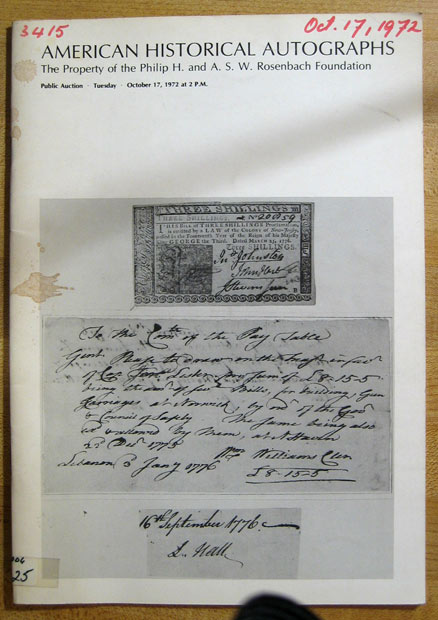 3415
Oct. 17, 1972
AMERICAN HISTORICAL AUTOGRAPHS
The Property of the Philip H. and A. S. W. Rosenbach Foundation
Public Auction · Tuesday · October 17, 1972 at 2 P.M.
THREE SHILLINGS
THREE SHILLINGS. No
THIS Bill of THREE SHILLINGS Proclamation,
is emitted by a LAW of the COLONY of New-Jersey,
passed in the Fourteenth Year of the Reign of his Majesty
GEORGE the Third. Dated MARCH 25, 1776.
Three SHILLINGS.
Johnston
John Hart
To the Comte of the Pay Table
Gent. Please to draw on the Treasr in favr
of Sum of £8-15-5
being the of Bills for building Gun
Carriages at Norwich, by ord of the Govr
& Council of Safety The same being also
allowed by them, at
1775
Wm Williams Clerk
Lebanon 3 Jany 1776
£8-15-5
16th September 1776
L. Hall
25